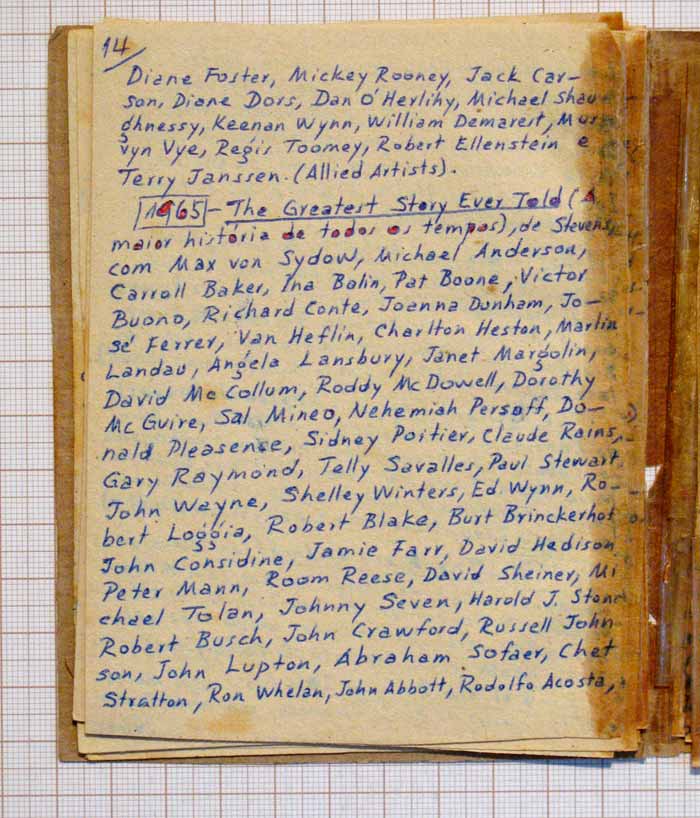 14
Diane Foster, Mickey Rooney, Jack Car-
son, Diane Dors, Dan O'Herlihy, Michael Shau
ghnessy, Keenan Wynn, William Demarest, Mur
vyn Vye, Regis Toomey, Robert Ellenstein e
Terry Janssen. (Allied Artists).
1965 - The Greatest Story Ever Told (A
maior história de todos os tempos), de Stevens,
com Max von Sydow, Michael Anderson,
Carroll Baker, Ina Balin, Pat Boone, Victor
Buono, Richard Conte, Joanna Dunham, Jo-
sé Ferrer, Van Heflin, Charlton Heston, Martin
Landau, Angela Lansbury, Janet Margolin,
David Mc Collum, Roddy Mc Dowell, Dorothy
Mc Guire, Sal Mineo, Nehemiah Persoff, Do-
nald Pleasense, Sidney Poitier, Claude Rains,
Gary Raymond, Telly Savalles, Paul Stewart
John Wayne, Shelley Winters, Ed. Wynn, Ro-
bert Loggia, Robert Blake, Burt Brinckerhof
John Considine, Jamie Farr, David Hedison
Peter Mann, Room Reese, David Sheiner, Mi
chael Tolan, Johnny Seven, Harold J. Stone
Robert Busch, John Crawford, Russell John
son, John Lupton, Abraham Sofaer, Chet
Stratton, Ron Whelan, John Abbott, Rodolfo Acosta,